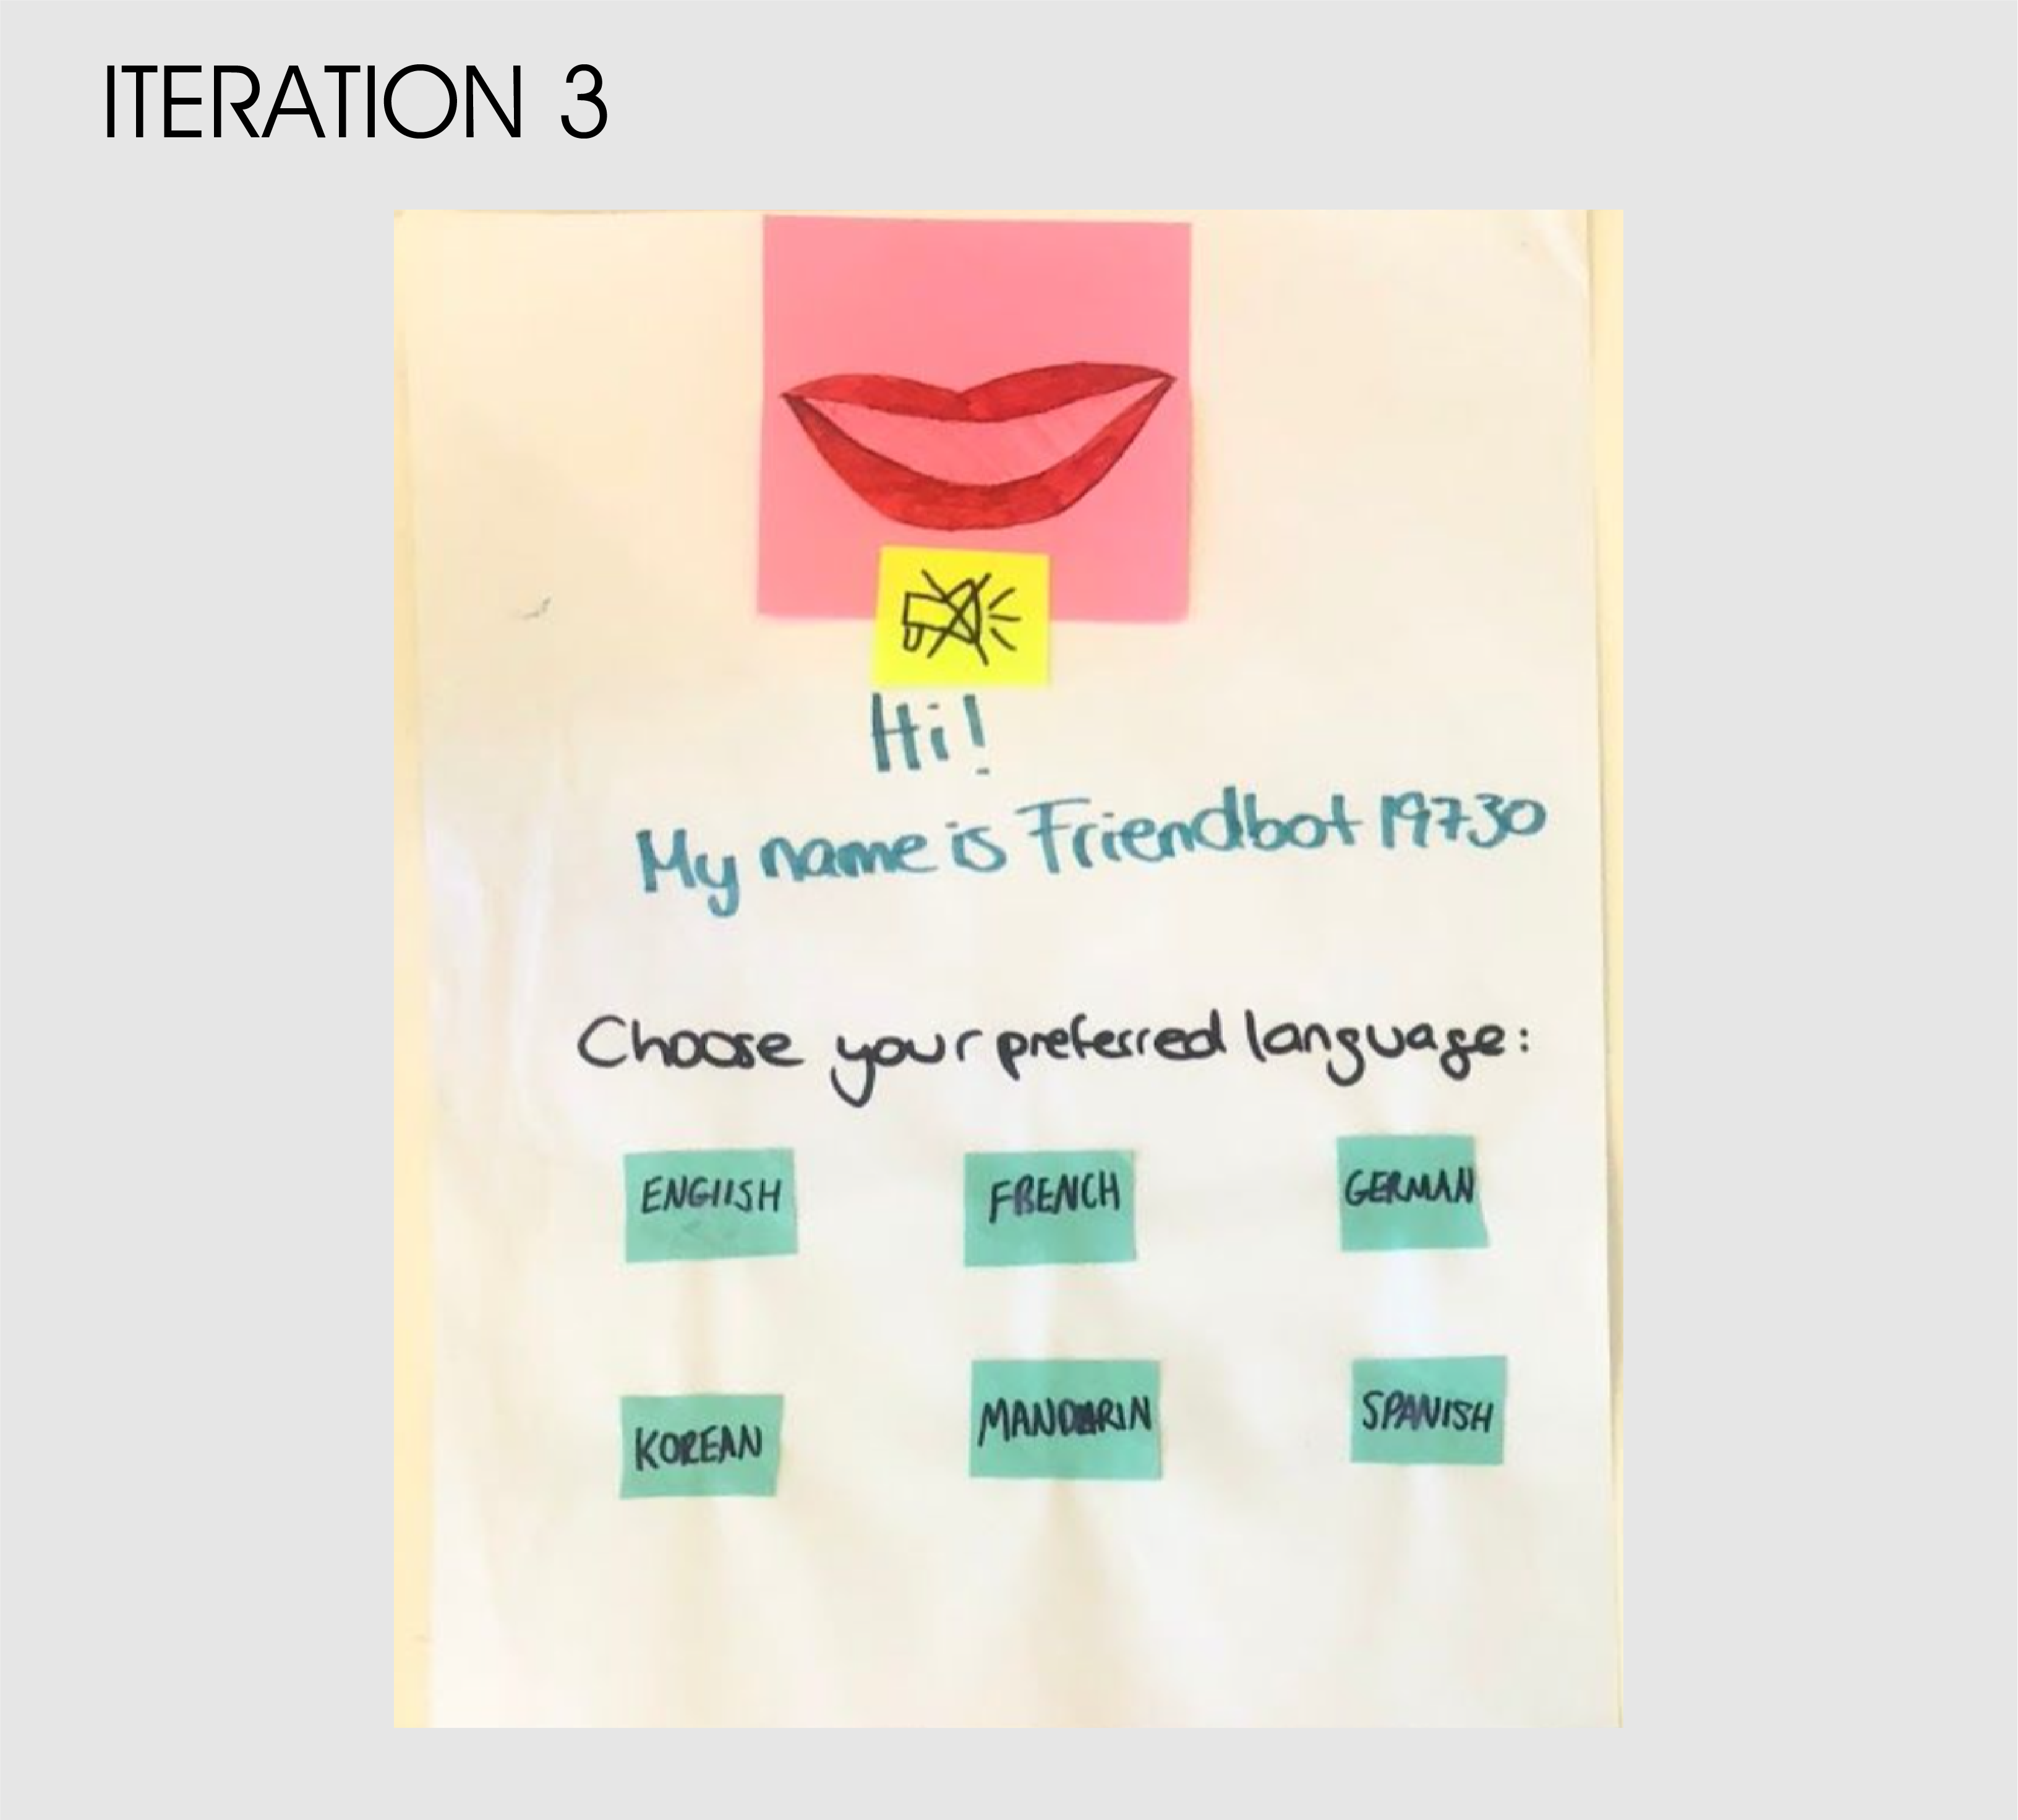 ITERATION 3
Hi!
My name is Friendbot 19730
Choose your preferred language:
ENGLISH FRENCH GERMAN
KOREAN MANDARIN SPANISH